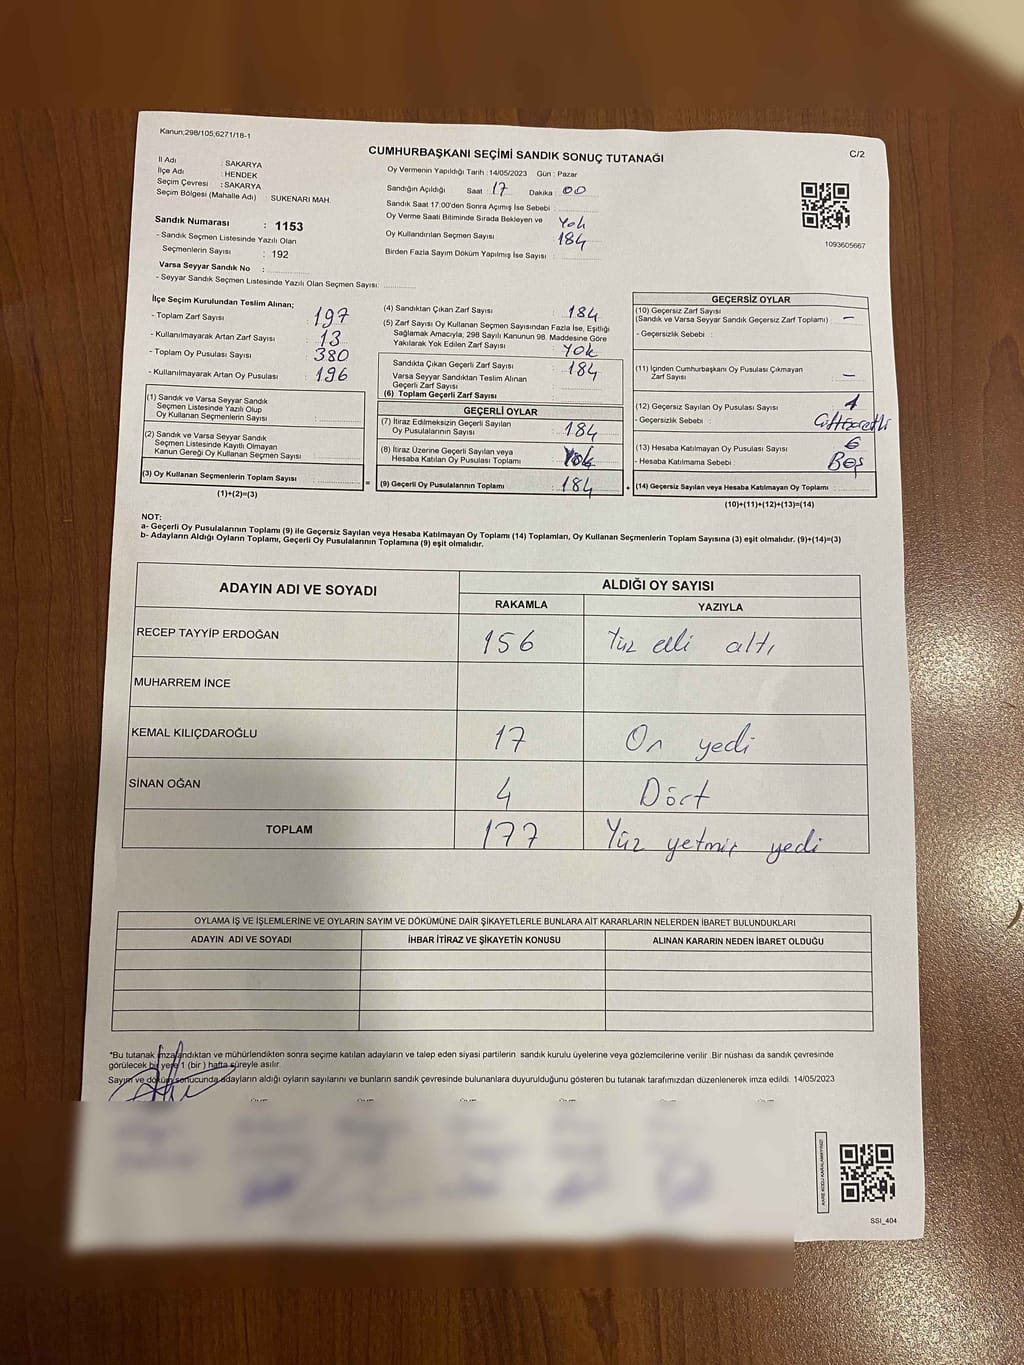 Kanun;298/105;6271/18-1
CUMHURBAŞKANI SEÇİMİ SANDIK SONUÇ TUTANAĞI
C/2
İl Adı : SAKARYA
İlçe Adı : HENDEK
Seçim Çevresi : SAKARYA
Seçim Bölgesi (Mahalle Adı) : SUKENARI MAH.
Sandık Numarası : 1153
- Sandık Seçmen Listesinde Yazılı Olan
Seçmenlerin Sayısı : 192
Varsa Seyyar Sandık No :
- Seyyar Sandık Seçmen Listesinde Yazılı Olan Seçmen Sayısı:
Oy Vermenin Yapıldığı Tarih :14/05/2023 Gün : Pazar
Sandığın Açıldığı Saat : 17 Dakika : 00
Sandık Saat 17:00'den Sonra Açımış İse Sebebi :
Oy Verme Saati Bitiminde Sırada Bekleyen ve
Oy Kullandırılan Seçmen Sayısı : Yok
184
Birden Fazla Sayım Döküm Yapılmış İse Sayısı :
1093605667
İlçe Seçim Kurulundan Teslim Alınan;
- Toplam Zarf Sayısı : 197
- Kullanılmayarak Artan Zarf Sayısı : 13
- Toplam Oy Pusulası Sayısı : 380
- Kullanılmayarak Artan Oy Pusulası : 196
(1) Sandık ve Varsa Seyyar Sandık
Seçmen Listesinde Yazılı Olup
Oy Kullanan Seçmenlerin Sayısı :
(2) Sandık ve Varsa Seyyar Sandık
Seçmen Listesinde Kayıtlı Olmayan
Kanun Gereği Oy Kullanan Seçmen Sayısı :
(3) Oy Kullanan Seçmenlerin Toplam Sayısı :
(1)+(2)=(3)
(4) Sandıktan Çıkan Zarf Sayısı : 184
(5) Zarf Sayısı Oy Kullanan Seçmen Sayısından Fazla İse, Eşitliği
Sağlamak Amacıyla, 298 Sayılı Kanunun 98. Maddesine Göre
Yakılarak Yok Edilen Zarf Sayısı : Yok
Sandıkta Çıkan Geçerli Zarf Sayısı : 184
Varsa Seyyar Sandıktan Teslim Alınan
Geçerli Zarf Sayısı :
(6) Toplam Geçerli Zarf Sayısı
GEÇERLİ OYLAR
(7) İtiraz Edilmeksizin Geçerli Sayılan
Oy Pusulalarının Sayısı : 184
(8) İtiraz Üzerine Geçerli Sayılan veya
Hesaba Katılan Oy Pusulası Toplamı : Yok
(9) Geçerli Oy Pusulalarının Toplamı : 184
=
+
GEÇERSİZ OYLAR
(10) Geçersiz Zarf Sayısı
(Sandık ve Varsa Seyyar Sandık Geçersiz Zarf Toplamı) : –
- Geçersizlik Sebebi :
(11) İçinden Cumhurbaşkanı Oy Pusulası Çıkmayan
Zarf Sayısı : –
(12) Geçersiz Sayılan Oy Pusulası Sayısı : 1
- Geçersizlik Sebebi :
(13) Hesaba Katılmayan Oy Pusulası Sayısı : 6
- Hesaba Katılmama Sebebi : Boş
(14) Geçersiz Sayılan veya Hesaba Katılmayan Oy Toplamı :
(10)+(11)+(12)+(13)=(14)
NOT:
a- Geçerli Oy Pusulalarının Toplamı (9) ile Geçersiz Sayılan veya Hesaba Katılmayan Oy Toplamı (14) Toplamları, Oy Kullanan Seçmenlerin Toplam Sayısına (3) eşit olmalıdır. (9)+(14)=(3)
b- Adayların Aldığı Oyların Toplamı, Geçerli Oy Pusulalarının Toplamına (9) eşit olmalıdır.
ADAYIN ADI VE SOYADI ALDIĞI OY SAYISI
RAKAMLA YAZIYLA
RECEP TAYYİP ERDOĞAN 156 Yüz elli altı
MUHARREM İNCE
KEMAL KILIÇDAROĞLU 17 On yedi
SİNAN OĞAN 4 Dört
TOPLAM 177 Yüz yetmiş yedi
OYLAMA İŞ VE İŞLEMLERİNE VE OYLARIN SAYIM VE DÖKÜMÜNE DAİR ŞİKAYETLERLE BUNLARA AİT KARARLARIN NELERDEN İBARET BULUNDUKLARI
ADAYIN ADI VE SOYADI İHBAR İTİRAZ VE ŞİKAYETİN KONUSU ALINAN KARARIN NEDEN İBARET OLDUĞU
*Bu tutanak imzalandıktan ve mühürlendikten sonra seçime katılan adayların ve talep eden siyasi partilerin sandık kurulu üyelerine veya gözlemcilerine verilir .Bir nüshası da sandık çevresinde
görülecek bir yere 1 (bir ) hafta süreyle asılır.
Sayım ve döküm sonucunda adayların aldığı oyların sayılarını ve bunların sandık çevresinde bulunanlara duyurulduğunu gösteren bu tutanak tarafımızdan düzenlenerek imza edildi. 14/05/2023
KARE KODU KARALAMAYINIZ!
SSI_404